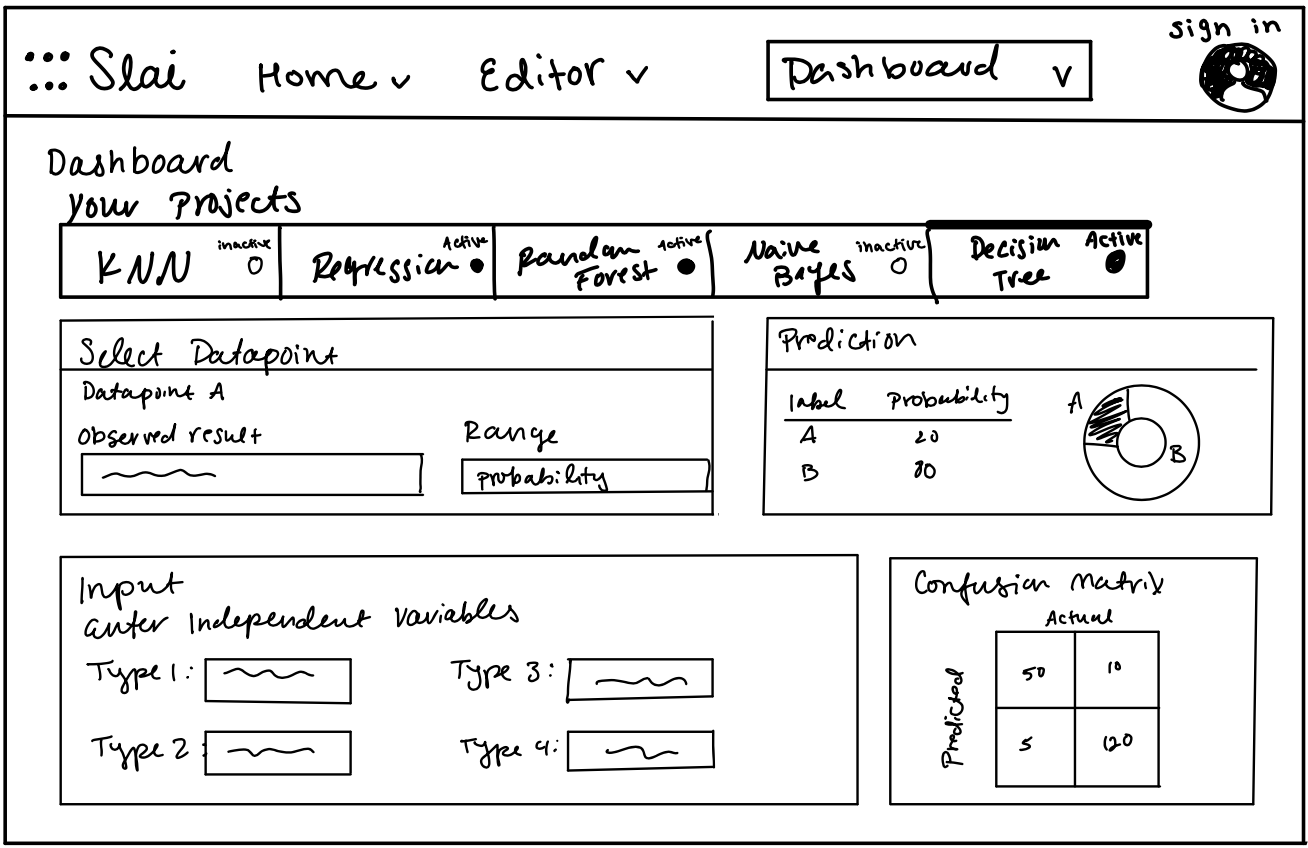 Slai Home Editor Dashboard sign in
Dashboard
your Projects
KNN inactive
Regression Active
Random Forest Active
Naive Bayes inactive
Decision Tree Active
Select Datapoint
Datapoint A
Observed result Range
probability
Prediction
label Probability
A 20
B 80
A
B
Input
enter Independent variables
Type 1: Type 3:
Type 2: Type 4:
Confusion Matrix
Actual
Predicted
50 10
5 120